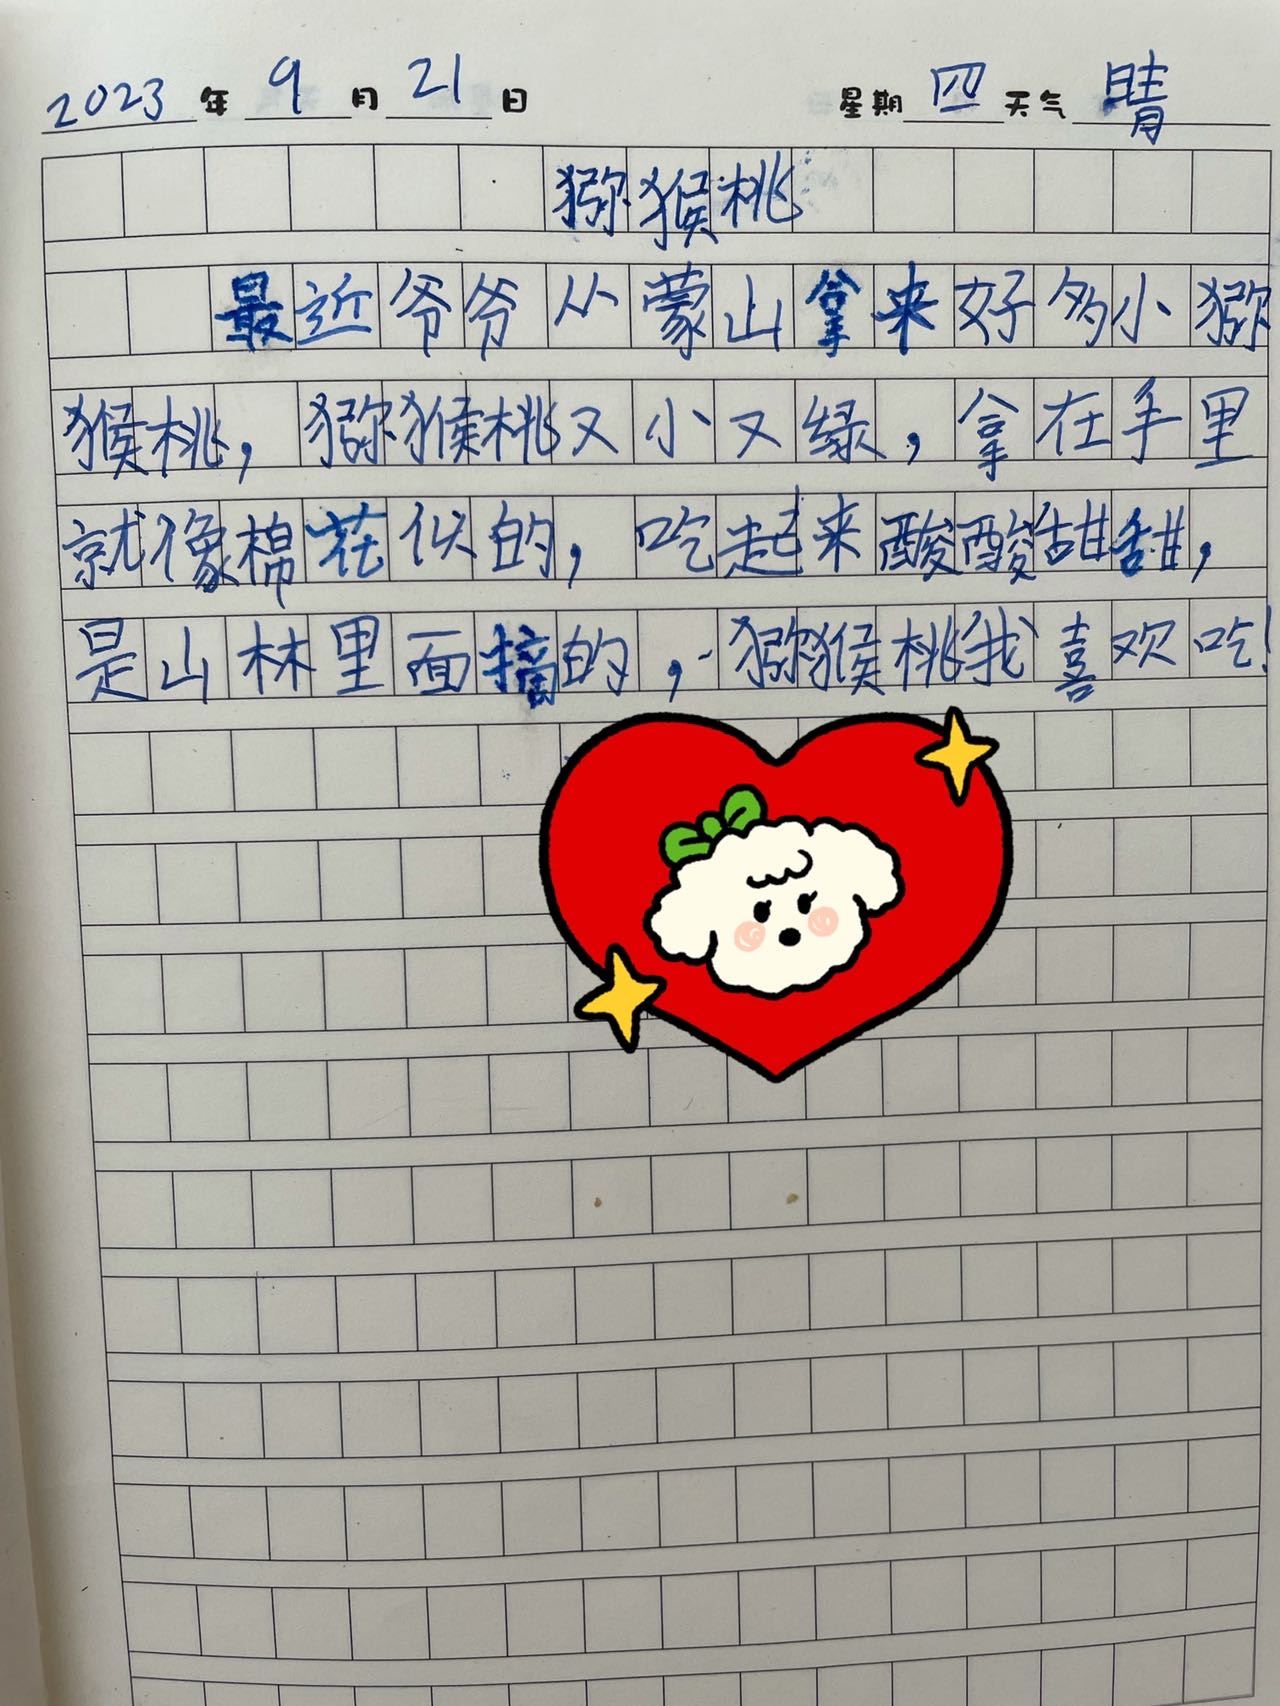 2023年9月21日 星期四天气晴
猕猴桃
最近爷爷从蒙山拿来好多小猕
猴桃，猕猴桃又小又绿，拿在手里
就像棉花似的，吃起来酸酸甜甜，
是山林里面摘的，猕猴桃我喜欢吃！